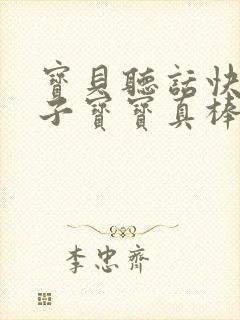 寶貝聽話快
子寶寶真棒
李忠齊